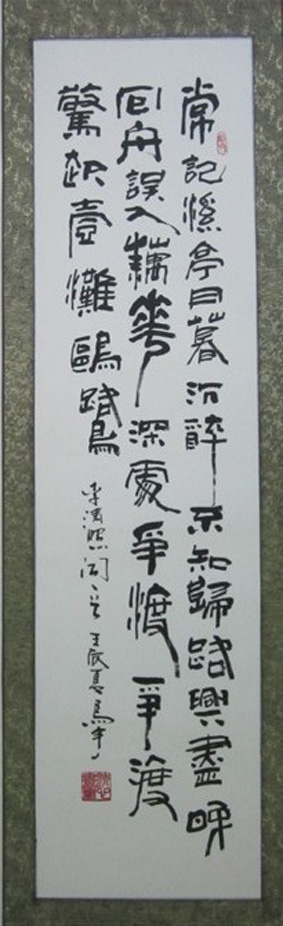 常記溪亭日暮沉醉不知歸路興盡晚
回舟誤入藕華深處爭渡爭渡
驚起壹灘鷗鷺
李清照 壬辰夏